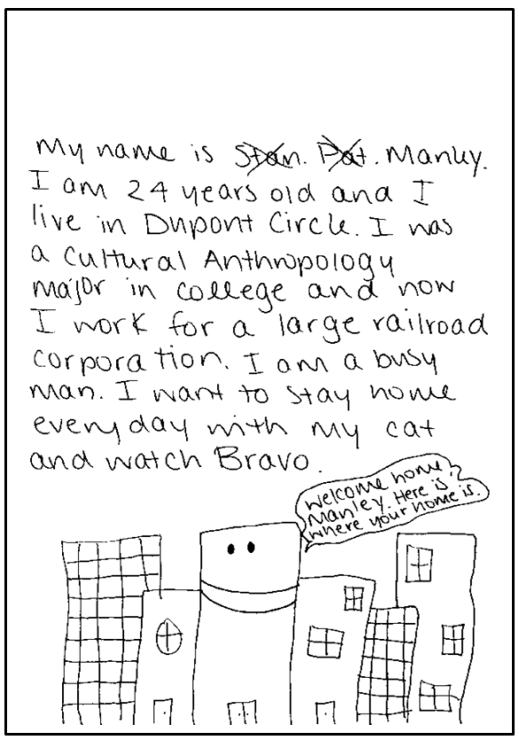 My name is Stan. Pat. Manley.
I am 24 years old and I
live in Dupont Circle. I was
a Cultural Anthropology
major in college and now
I work for a large railroad
corporation. I am a busy
man. I want to stay home
everyday with my cat
and watch Bravo.
Welcome home,
Manley. Here is
where your home is.